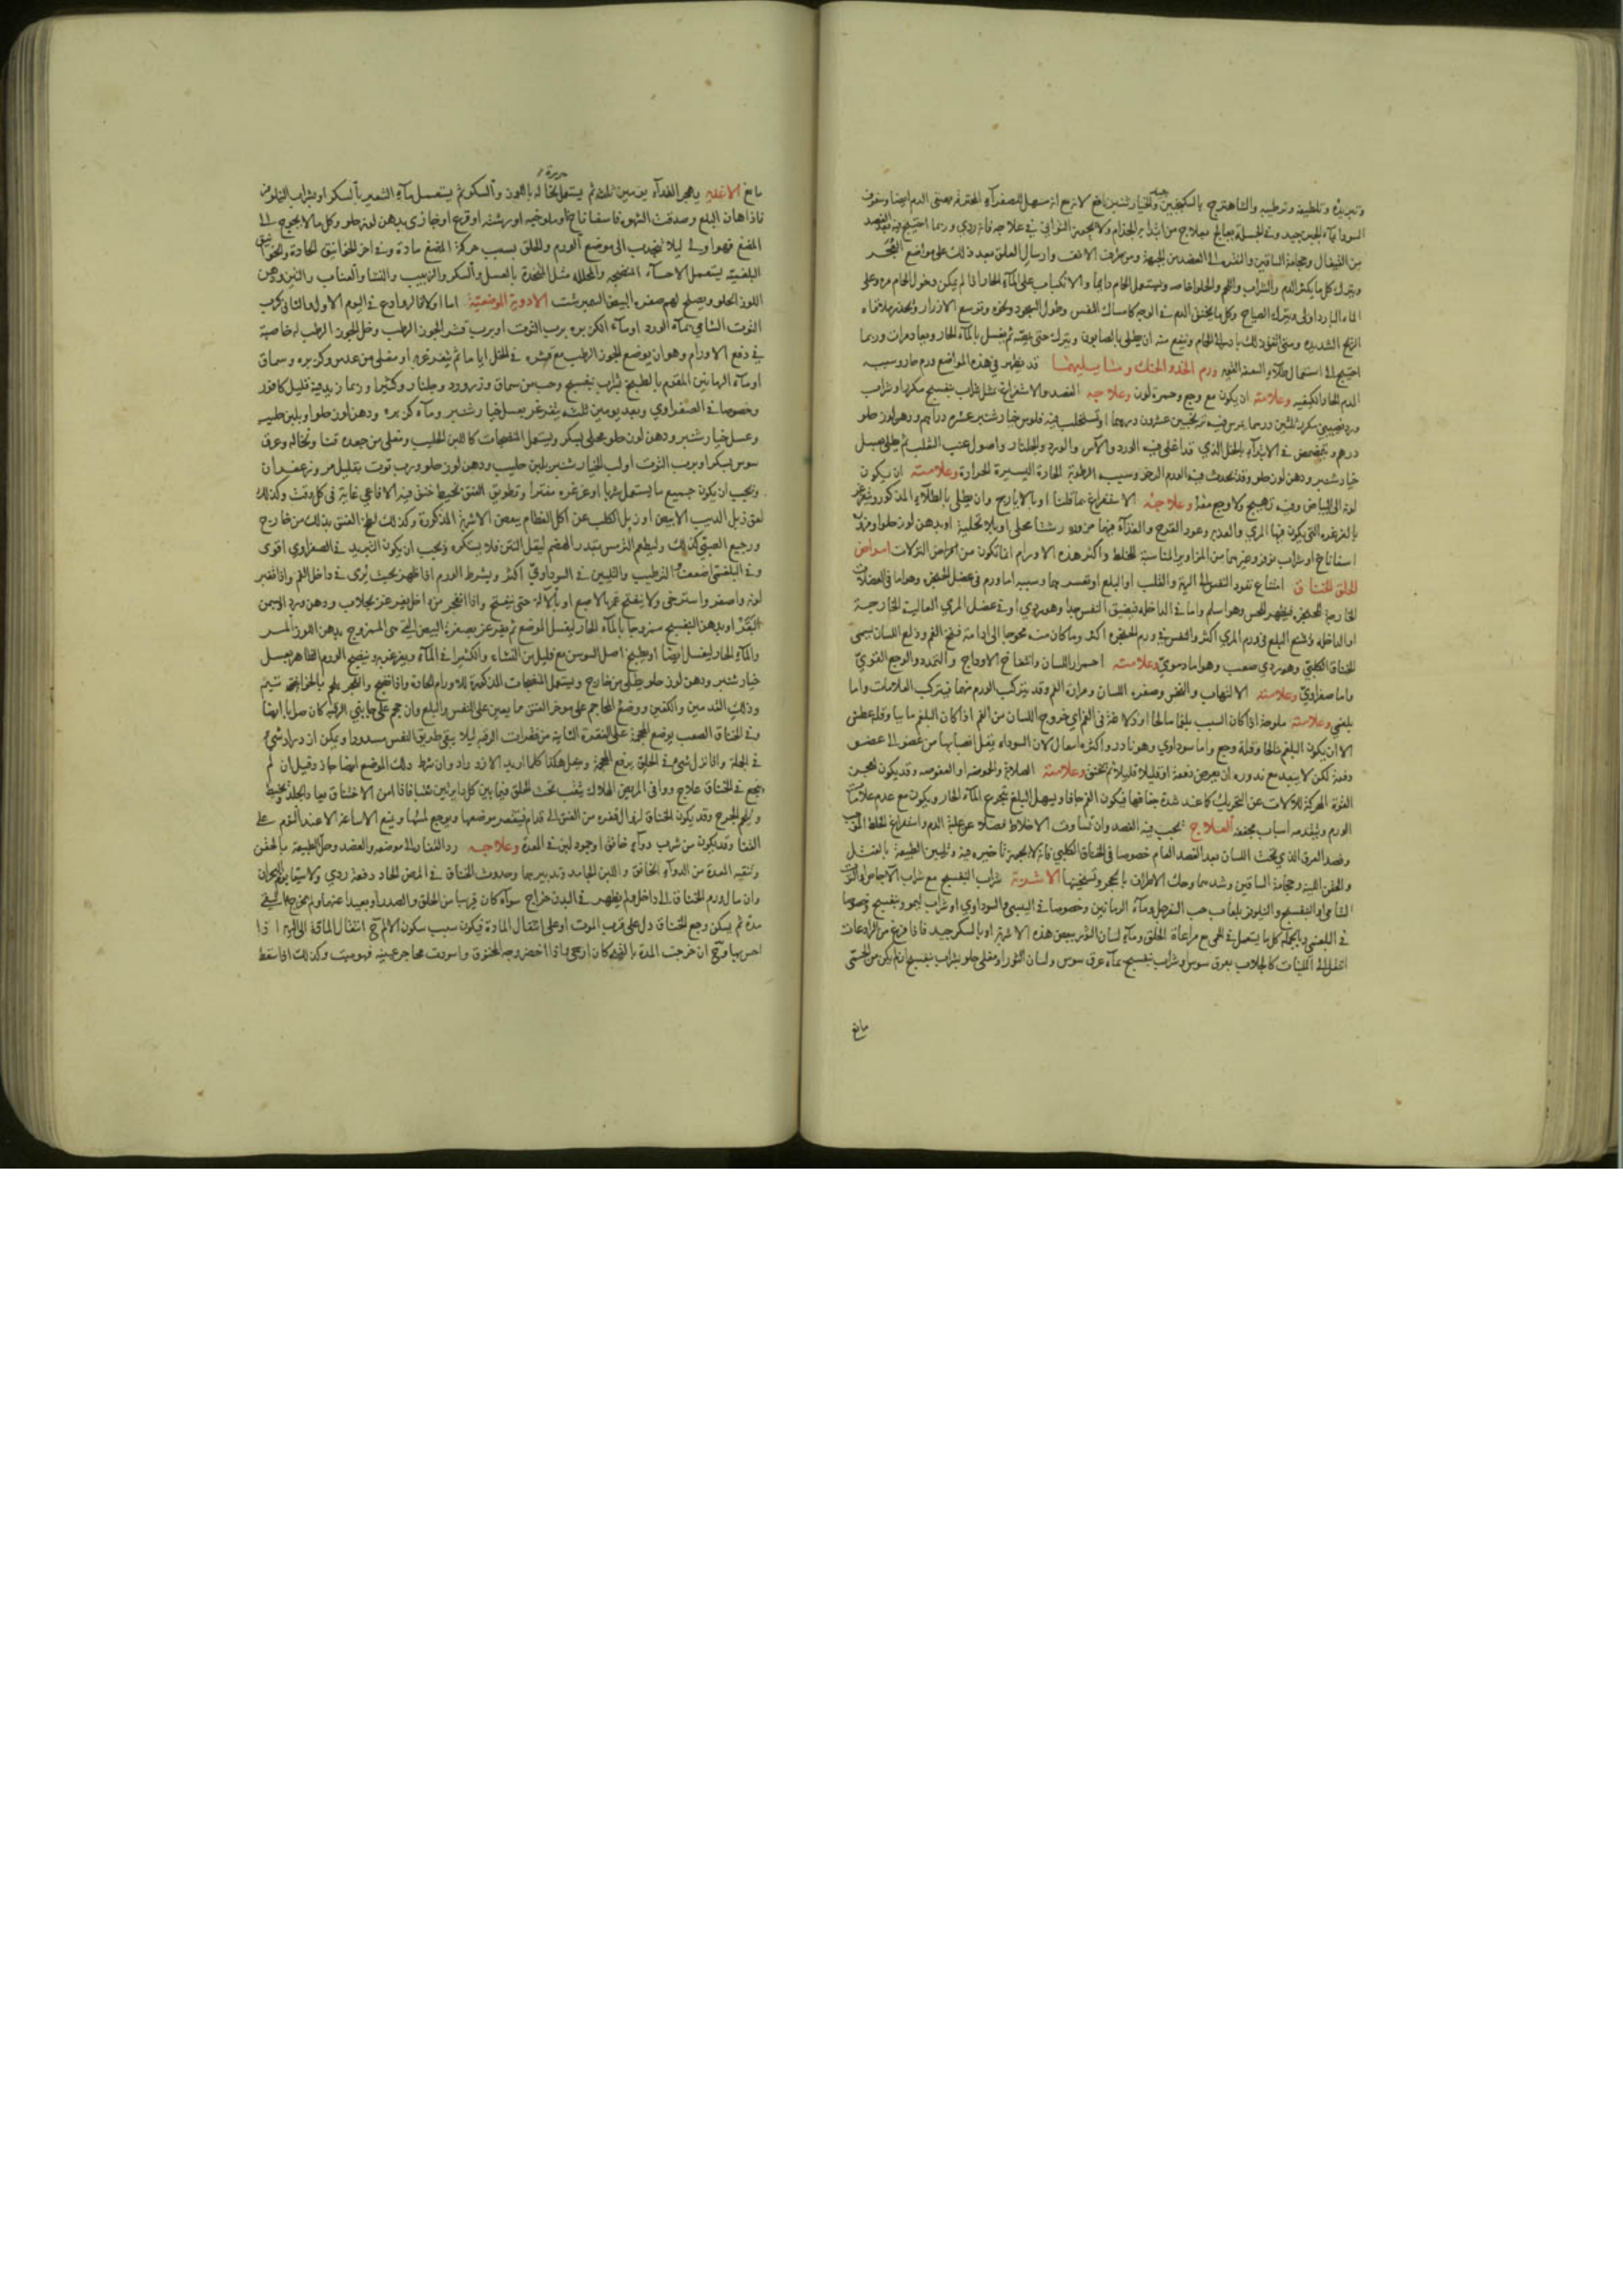 وتبريده وتلطيفه وترطيبه والشاهترج بالسكنجبين والخيار شنبر نافع لانه مسهل للصفرآء المحترقة مصفى الدم ايضا وسفوف
السودا بمآء الجبن جيد وفى الجملة يعالج بعلاج من ابتدأ به الجذام ولا يجمعن التوانى فى علاجه فانه ردي وربما احتيج فيه الى فصد
من القيفال وحجامة الساقين والنقرة الى الفصد من الجبهة ومن طرف الانف وارسال العلق بعد ذلك على مواضع التحجر
ويترك كل ما يكثر الدم والشراب واللحم والحلوا خاصه ويستعمل الحمام دايما والانكباب على المآء الحار اذا لم يكن دخول الحمام
المآء البارد ويترك الصياح وكل ما يحقن الدم فى الوجه كامساك النفس وطول السجود ونحوه وتوسع الازرار
الريح الشديده ان يطلى بالصابون ويترك حتى ثم يغسل بالمآء الحار ويعاد مرات وربما
احتيج الى استعمال طلآء السعفة القوية ورم الخد والحنك وما يليهما قد يظهر فى هذه المواضع ورم حار وسببه
الدم الحاد الكيفيه وعلامته ان يكون مع وجع وحمرة لون وعلاجه الفصد والاستفراغ بمثل شراب بنفسج مكرر او شراب
ورد نصيبي مكرر ثلثين درهما يمرس فيه ترنجبين عشرون درهما او تستحلب فيه فلوس خيار شنبر عشره دراهم ودهن لوز حلو
درهم ويتمضمض فى الابتدآء بالخل الذي قد اغلى فيه الورد والآس والورد والجلنار واصول عنب الثعلب ثم يطلى بعسل
خيار شنبر ودهن لوز حلو وقد يحدث فيه الورم الرخو وسببه الرطوبة الحارة اليسيرة الحرارة وعلامته ان يكون
لونه الى البياض وفيه تهيج ولا وجع معه وعلاجه الاستفراغ بما قلنا او بالايارج وان يطلى بالطلآء المذكور ويتغرغر
بالغرغره التى يكون فيها المري والعود القرح والغذآء فيهما مزوره رشتا محلى او بلا تحليه او بدهن لوز حلو او مزورة
اسفاناخ او شراب نوفر وغيرهما من المزاوير المناسبة للخلط واكثر هذه الاورام انما تكون من امراض النزلات امراض
الحلق الخناق امتناع نفوذ النفس الى الرية والقلب او البلع او تعسرهما وسببه اما ورم فى عضل الحنجره وهو اما فى العضلات
الخارجة الحنجره فيظهر للحس وهو اسلم واما فى الداخله فيضيق النفس جدا وهو ردي او فى عضل المري العالية الخارجة
او الداخله ويمنع البلع فى ورم المري اكثر والنفس فى ورم الحنجره اكثر وما كان منه محوجا الى ادامة فتح الفم ودلع اللسان يسمى
الخناق الكلبي وهو ردي صعب وهو اما دموي وعلامته احمرار اللسان وانتفاخ الاوداج والتمدد والوجع القوي
واما صفراوي وعلامته الالتهاب والنخس وصفره اللسان ومرارة الفم وقد يتركب الورم منهما فيتركب العلامات واما
بلغمي وعلامته ملوحة اذا كان السبب بلغما مالحا او دلاعة فى الفم اي خروج اللسان من الفم اذا كان البلغم مايا وقلة عطش
الا ان يكون البلغم مالحا وقلة وجع واما سوداوي وهو نادر واكثره انتقال لان السوداء يقل انصبابها من عضو الى عضو
دفعة لكن لا يبعد مع ندوره ان يعرض دفعة او قليلا قليلا ثم يخنق وعلامته الصلابة والحموضه او العفوصه وقد يكون لعجز
القوة المحركة للالات عن التحريك كما عند شدة جفافها فيكون الفم جافا ويسهل البلغ بتجرع المآء الحار ويكون مع عدم علامات
الورم ويتقدمه اسباب مجففه العلاج يجب فيه الفصد وان تساوت الاخلاط فضلا عن غلبة الدم واستفراغ الخلط الموجب
وفصد العرق الذي تحت اللسان بعد الفصد العام خصوصا فى الخناق الكلبي فانه لا يجب تاخيره فيه وتليين الطبيعة بالفتل
والحقن اللينه وحجامة الساقين وشدهما وحك الاطراف بالحجر وتسخينها الاشربة شراب البنفسج مع شراب الاجاص او التوت
الشامي او البنفسج والنيلوفر بلعاب حب السفرجل ومآء الرمانين وخصوصا فى اليبسي والسوداوي او شراب ليمو وبنفسج خصوصا
فى البلغمي وبالجمله كل ما يستعمل فى الحمى مع مراعاة الحلق ومآء لسان الثور ببعض هذه الاشربه او بالسكر جيد فاذا فرغ من الرادعات
انتقل الى الملينات كالجلاب بعرق سوس وشراب بنفسج بمآء عرق سوس ولسان الثور او مغلى حلو بشراب بنفسج ان لم يكن من الحمى
مانع
مانع الاغذيه يهجر الغدآء يومين ثلثه ثم يستعمل نخاله باللوز والسكر ثم يستعمل مآء الشعير بالسكر او بشراب النيلوفر
فاذا هان البلع وصدقت الشهوه فاسفاناخ او ملوخيه او رشته او قرع او خبازى بدهن لوز حلو وكل ما لا يحوج الى
المضغ فهو اولى ليلا تنجذب الى موضع الورم والحلق بسبب حركة المضغ مادة وفى اخر الخوانيق الحادة والخوانيق
البلغميه يستعمل الاحسآء المنضجه والمحلله مثل المتخذة بالعسل والسكر والزبيب والنشا والعناب والتين ودهن
اللوز الحلو ويصلح لهم صفره البيض النمبرشت الادوية الموضعية اما اولا فالروادع فى اليوم الاول والثانى كرب
التوت الشامي بمآء الورد او مآء الكزبره برب التوت او برب قشر الجوز الرطب وخل الجوز الرطب له خاصية
فى دفع الاورام وهو ان يوضع الجوز الرطب مع قشره فى الخل اياما ثم يتغرغر به او مغلى من عدس وكزبره وسماق
او مآء الرمانين المقوم بالطبخ بشراب بنفسج وحب من سماق وزر ورد وجلنار وكثيرا وربما زيد فيه قليل كافور
وخصوصا فى الصفراوي وبعد يومين ثلثه يتغرغر بعسل خيار شنبر ومآء كزبره ودهن لوز حلو او بلبن حليب
وعسل خيار شنبر ودهن لوز حلو محلى بسكر ويستعمل المنضجات كاللبن الحليب ومغلى من جعده قثا ونخاله وعرق
سوس بسكر او برب التوت او لب الخيار شنبر بلبن حليب ودهن لوز حلو ورب توت بقليل مر وزعفران
ويجب ان يكون جميع ما يستعمل شربا او غرغره مفترا وتطويق العنق بخيط خنق فيه الافاعي غاية فى كل وقت وكذلك
لعق زبل الديب الابيض او زبل الكلب عن اكل العظام ببعض الاشربة المذكورة وكذلك لطخ العنق بذلك من خارج
ورجيع الصبي كذلك وليطعم الترمس بقدر الهضم ليقل النتن فلا يستكره ويجب ان يكون التبريد فى الصفراوي اقوى
وفى البلغمي اضعف والترطيب والتليين فى السوداوي اكثر ويشرط الورم اذا ظهر بحيث يرى فى داخل الفم واذا تغير
لونه واصفر واسترخى ولا ينفتح غمز بالاصبع او بالآلة حتى ينفتح واذا انفجر من داخل يغرغر بجلاب ودهن ورد او سمن
البقر او بدهن البنفسج ممزوجا بالمآء الحار ليغسل الموضع ثم يغرغر بصفرة البيض الني الممزوج بدهن اللوز المر
والمآء الحار ليغسل ايضا او طبيخ اصل السوسن مع قليل من النشاء والكثيرا فى المآء ويغرغر به وينضج الورم الظاهر بعسل
خيار شنبر ودهن لوز حلو يطلى من خارج ويستعمل المنضجات المذكورة للاورام الحادة واذا نضج وانفجر يلحم
وذلك القدمين والكفين ووضع المحاجم على موخر العنق مما يعين على النفس والبلع وان حجم على جانبي الرقبة كان صوابا ايضا
وفى الخناق الصعب يوضع المحجمة على النقرة الثانية من فقرات الرقبه ليلا يبقى طريق النفس مسدودا ويمكن ان يزدرد شيء
فى الجملة واذا نزل شيء فى الحلق يرفع المحجمة ويعمل هكذا كلما اريد الازدراد وان شرط ذلك الموضع ايضا جاز وقيل ان لم
ينجع فى الخناق علاج ووافى المريض الهلاك يثقب تحت الحلق فيما بين كل دايرتين ثقبا فاذا امن الاختناق يخاط الجلد بخيط
ويلحم الجرح وقد يكون الخناق لزوال فقره من العنق الى قدام فيتقعر موضعها ويوجع لمسها ويمنع الاساغة الا عند النوم على
القفا وقد يكون من شرب دوآء خانق او جمود لبن فى المعدة وعلاجه رد الفقار الى موضعه والفصد وحل الطبيعة بالحقن
وتنقيه المعدة من الدوآء الخانق واللبن الجامد وتدبيرهما وحدوث الخناق فى المرض الحاد دفعة ردي ولا سيما يوم البحران
وان مال ورم الخناق الى داخل ولم يظهر فى البدن خراج سوآء كان قريبا من الحلق والصدر او بعيدا عنهما ولم يخرج بالقي
مدة ثم يسكن وجع الخناق دل على قرب الموت او على انتقال المادة فيكون سبب سكون الالم ح انتقال المادة الى الرية اذا
احس بها وح ان خرجت المدة بالنفث كان ارجى واذا اخضر وجه المخنوق واسودت محاجر عينيه فهو ميت وكذلك اذا سقط